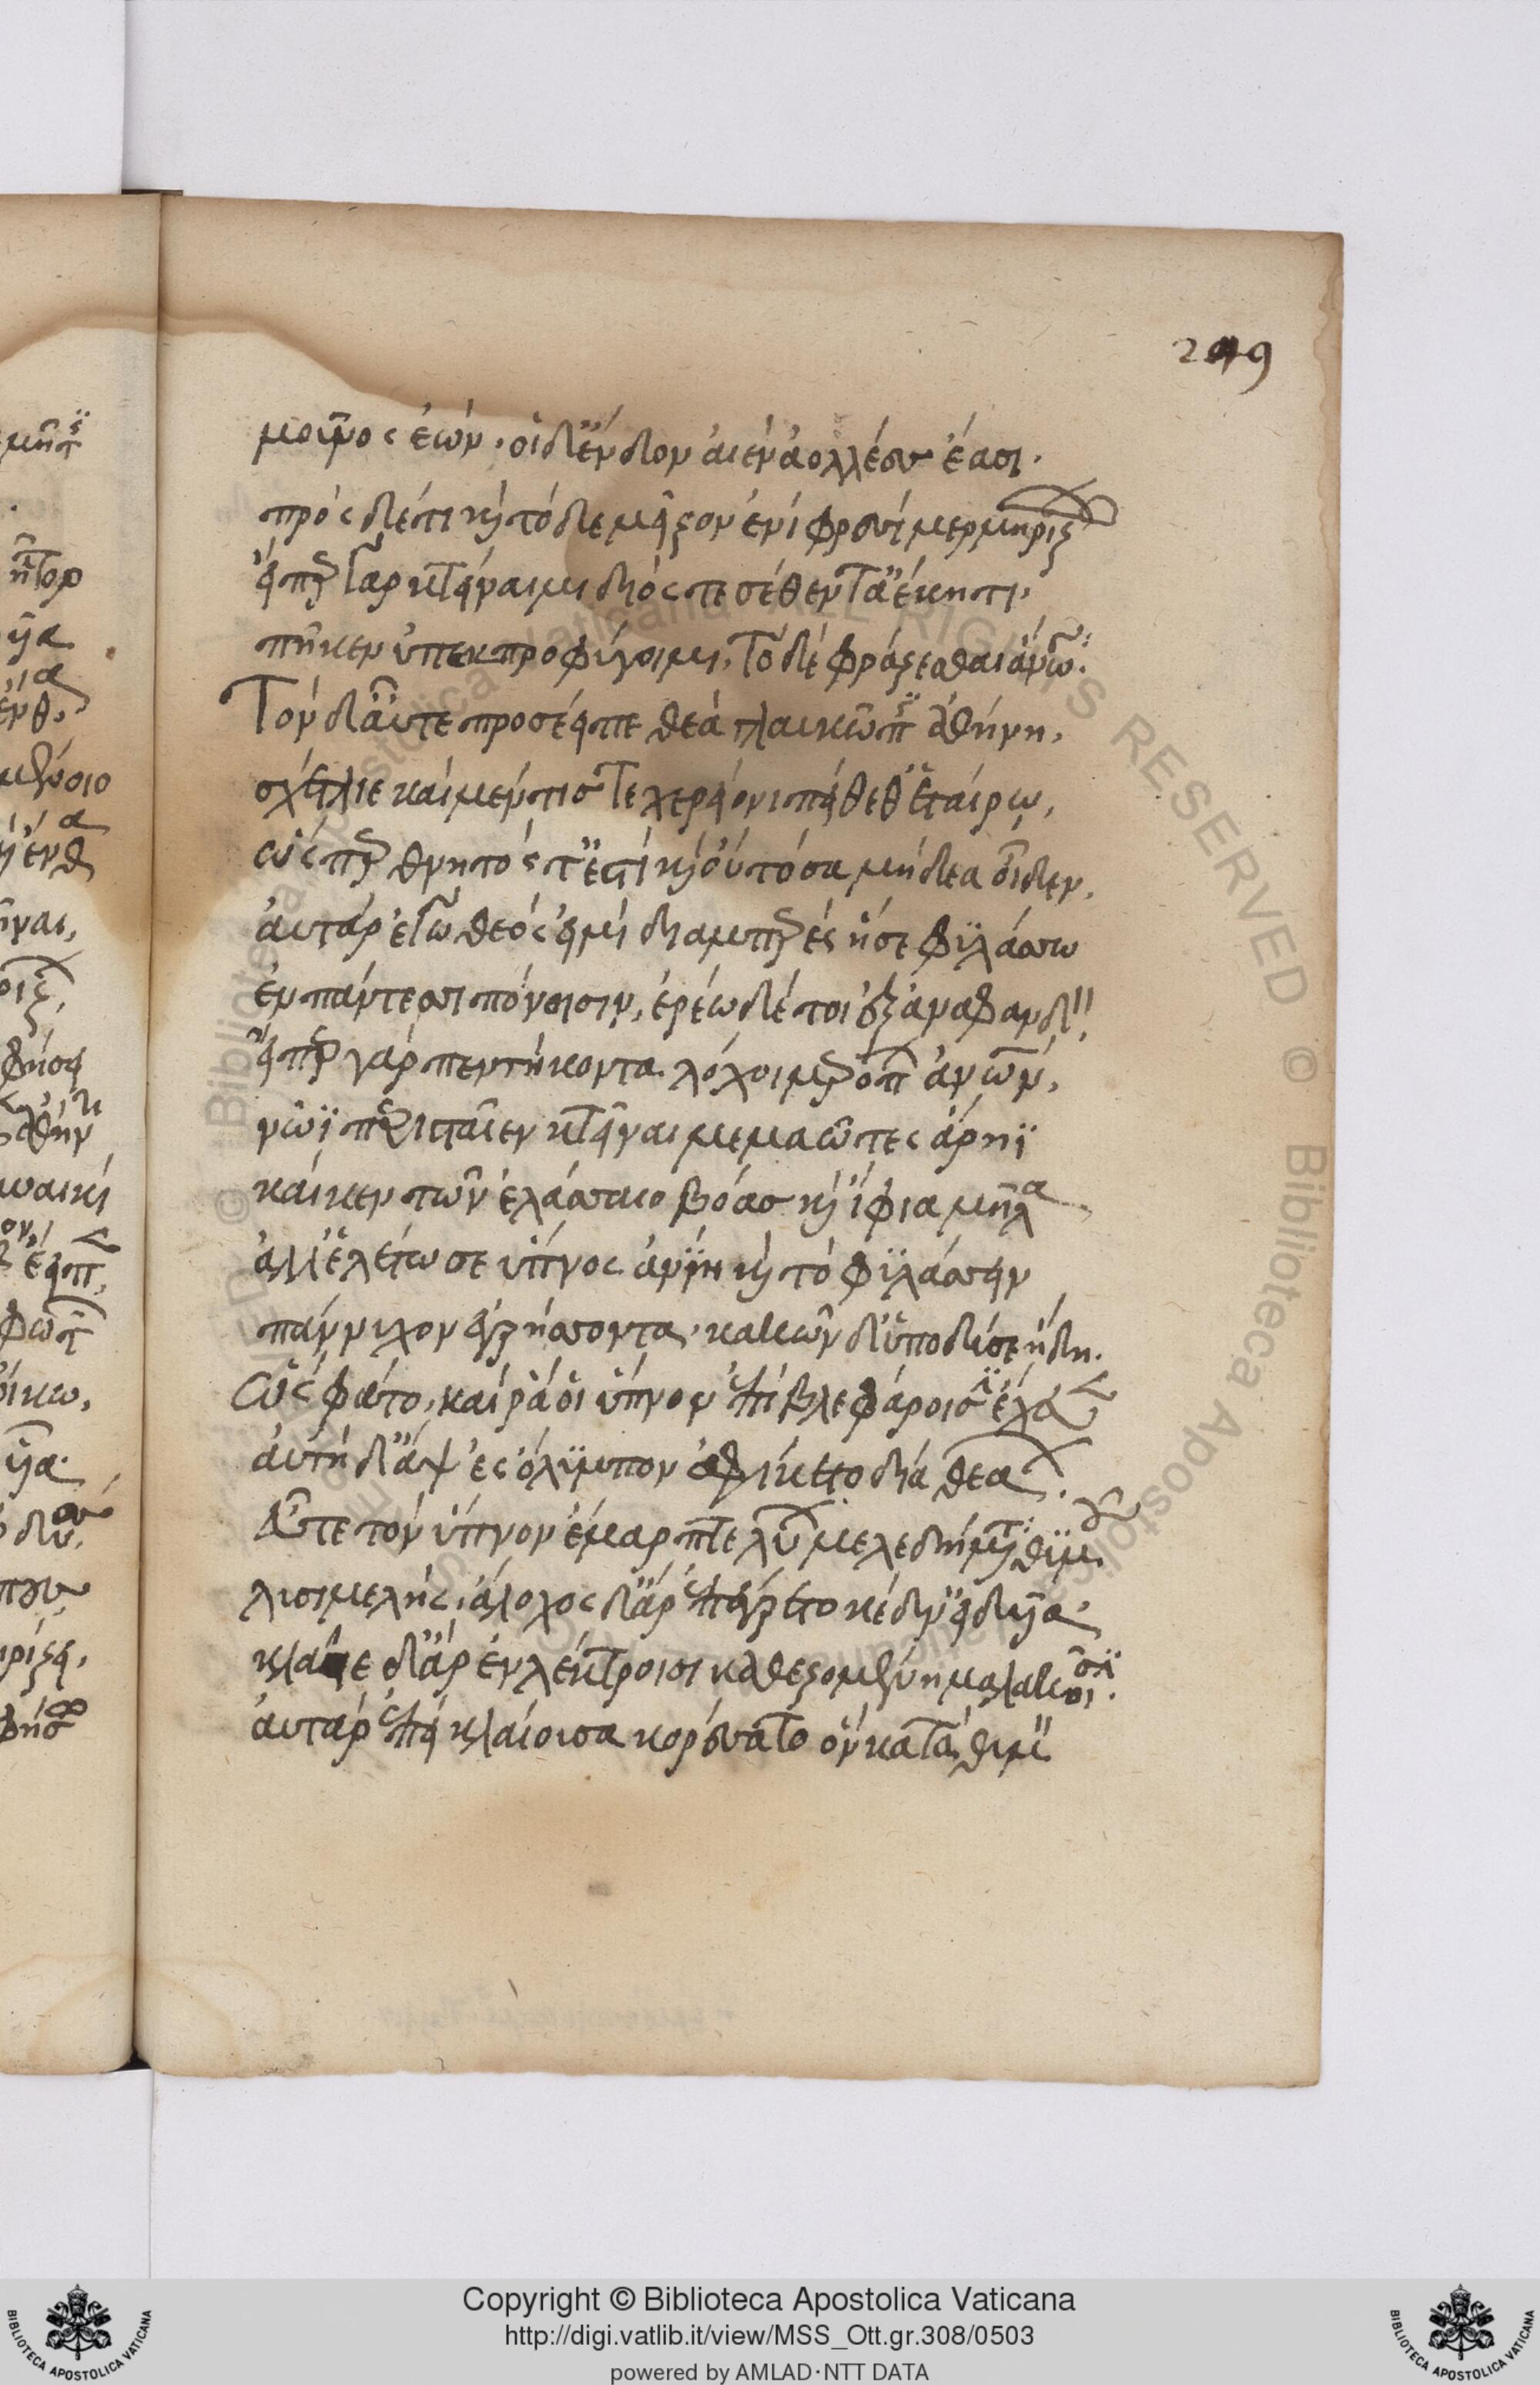 249
μοῦνος ἐών· οἱ δ' ἔνδον αἰὲν ἀολλέες ἔασι·
πρὸς δ' ἔτι καὶ τόδε μεῖζον ἐνὶ φρεσὶ μερμηρίζω
εἴπερ γὰρ κτείναιμι διός τε σέθεν τὰ ἕκητι·
πῆ κεν ὑπεκπροφύγοιμι, τό δε φράζεσθαι ἄνωγα·
Τὸν δ' αὖτε προσέειπε θεὰ γλαυκῶπις ἀθήνη,
σχέτλιε καὶ μέν τίς τε χερείονι πείθεθ' ἑταίρω,
ὥς περ θνητός τ' ἐστὶ καὶ οὐ τόσα μήδεα οἶδεν,
αὐτὰρ ἐγὼ θεός εἰμὶ διαμπερὲς ἥ σε φυλάσσω
ἐν πάντεσσι πόνοισιν, ἐρέω δέ τοι ἐξαναφανδὸν,
εἴπερ γὰρ πεντήκοντα λόχοι μερόπων ἀνθρώπων,
νῶϊ περισταῖεν κτεῖναι μεμαῶτες ἄρηϊ
καί κεν τῶν ἐλάσσαιο βόας καὶ ἴφια μῆλα
ἀλλ' ἑλέτω σε ὕπνος ἀνίη καὶ τὸ φυλάσσειν
πάννυχον ἐγρήσσοντα· κακῶν δ' ὑποδύσε ἤδη.
Ὣς φάτο, καί ῥά οἱ ὕπνον ἐπὶ βλεφάροισιν ἔχευεν
αὐτὴ δ' ἂψ ἐς ὄλυμπον ἀφίκετο δῖα θεάων.
Εὖτε τὸν ὕπνον ἔμαρπτε λύων μελεδήματα θυμοῦ
λυσιμελής· ἄλοχος δ' ἄρ' ἐπέγρετο κέδν' εἰδυῖα·
κλαῖε δ' ἄρ' ἐν λέκτροισι καθεζομένη μαλακοῖσιν.
αὐτὰρ ἐπεὶ κλαίουσα κορέσσατο ὃν κατὰ θυμὸν
Copyright © Biblioteca Apostolica Vaticana
http://digi.vatlib.it/view/MSS_Ott.gr.308/0503
powered by AMLAD·NTT DATA